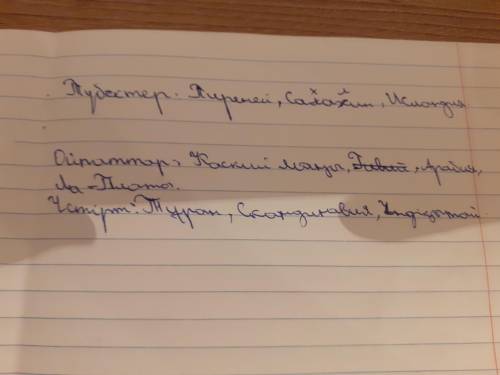 Түбектер: Пиреней, Сахалин, Исландия
Ойпаттар: Каспий маңы, Гавай, Арабия,
Ла-Плата.
Үстірт: Тұран, Скандинавия, Үндіқытай.